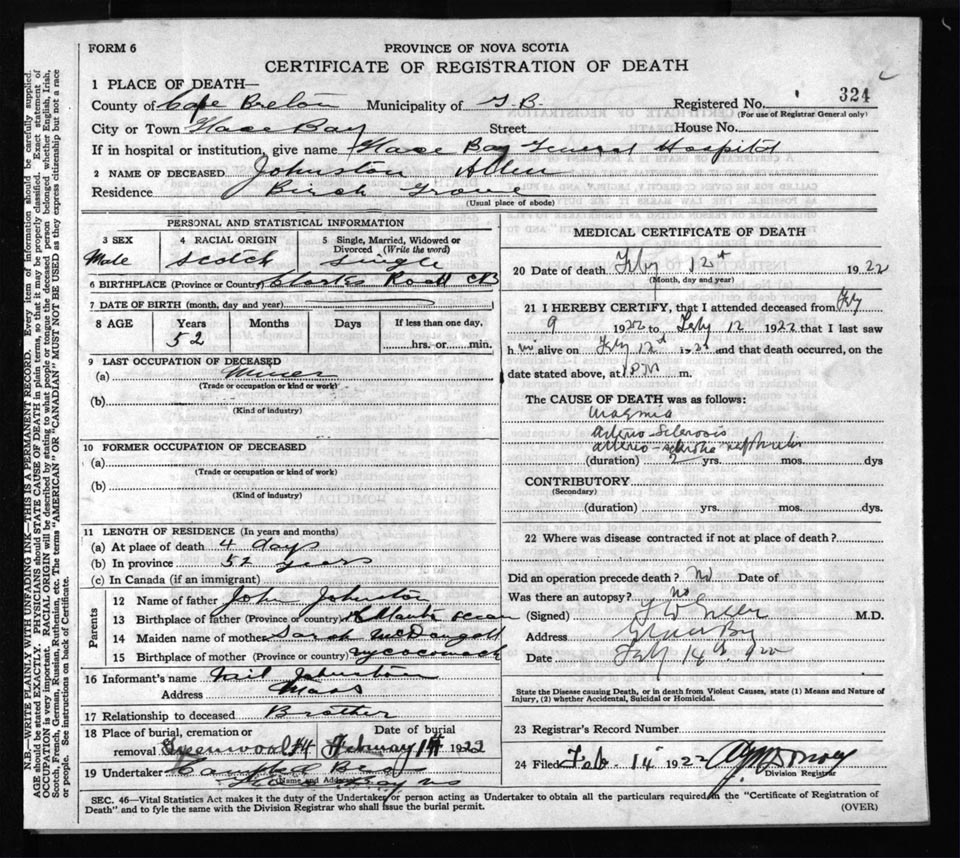 FORM 6
PROVINCE OF NOVA SCOTIA
CERTIFICATE OF REGISTRATION OF DEATH
1 PLACE OF DEATH—
County of Cape Breton Municipality of G.B. Registered No. 324
(For use of Registrar General only)
City or Town Glace Bay Street House No.
If in hospital or institution, give name Glace Bay General Hospital
2 NAME OF DECEASED Johnston Allen
Residence Birch Grove
(Usual place of abode)
PERSONAL AND STATISTICAL INFORMATION
3 SEX 4 RACIAL ORIGIN 5 Single, Married, Widowed or
Divorced (Write the word)
Male Scotch Single
6 BIRTHPLACE (Province or Country) Clarkes Road CB
7 DATE OF BIRTH (month, day and year)
8 AGE Years Months Days If less than one day,
52 hrs. or min.
9 LAST OCCUPATION OF DECEASED
(a) Miner
(Trade or occupation or kind or work)
(b)
(Kind of industry)
10 FORMER OCCUPATION OF DECEASED
(a)
(Trade or occupation or kind of work)
(b)
(Kind of industry)
11 LENGTH OF RESIDENCE (In years and months)
(a) At place of death 4 days
(b) In province 52 years
(c) In Canada (if an immigrant)
Parents
12 Name of father John Johnston
13 Birthplace of father (Province or country)
14 Maiden name of mother Sarah McDougall
15 Birthplace of mother (Province or country) Whycocomagh
16 Informant's name Neil Johnston
Address Mass
17 Relationship to deceased Brother
18 Place of burial, cremation or Date of burial
removal Greenwood February 14 1922
19 Undertaker Campbell Bros
(Name and Address)
MEDICAL CERTIFICATE OF DEATH
20 Date of death Feby 12th 1922
(Month, day and year)
21 I HEREBY CERTIFY, that I attended deceased from Feby
9 1922 to Feby 12 1922 that I last saw
h im alive on Feby 12th 1922 and that death occurred, on the
date stated above, at 1 PM m.
The CAUSE OF DEATH was as follows:
Uraemia
Arterio-Sclerosis
arterio-sclerotic nephritis
(duration) 2 yrs. mos. dys
CONTRIBUTORY
(Secondary)
(duration) yrs. mos. dys.
22 Where was disease contracted if not at place of death?
Did an operation precede death? No Date of
Was there an autopsy? No
(Signed) M.D.
Address Glace Bay
Date Feby 14th 1922
State the Disease causing Death, or in death from Violent Causes, state (1) Means and Nature
of Injury, (2) whether Accidental, Suicidal or Homicidal.
23 Registrar's Record Number
24 Filed Feb. 14 1922
Division Registrar
SEC. 46—Vital Statistics Act makes it the duty of the Undertaker or person acting as Undertaker to obtain all the particulars required in the "Certificate of Registration of
Death" and to fyle the same with the Division Registrar who shall issue the burial permit. (OVER)
N.B.—WRITE PLAINLY WITH UNFADING INK—THIS IS A PERMANENT RECORD. Every item of information should be carefully supplied.
AGE should be stated EXACTLY. PHYSICIANS should STATE CAUSE OF DEATH in plain terms, so that it may be properly classified. Exact statement of
OCCUPATION is very important. RACIAL ORIGIN will be described by stating to what people or tongue the deceased person belonged whether English, Irish,
Scotch, French, German, Russian, Ruthenian, etc. The terms "AMERICAN" OR "CANADIAN" MUST NOT BE USED as they express citizenship but not a race
or people. See instructions on back of Certificate.